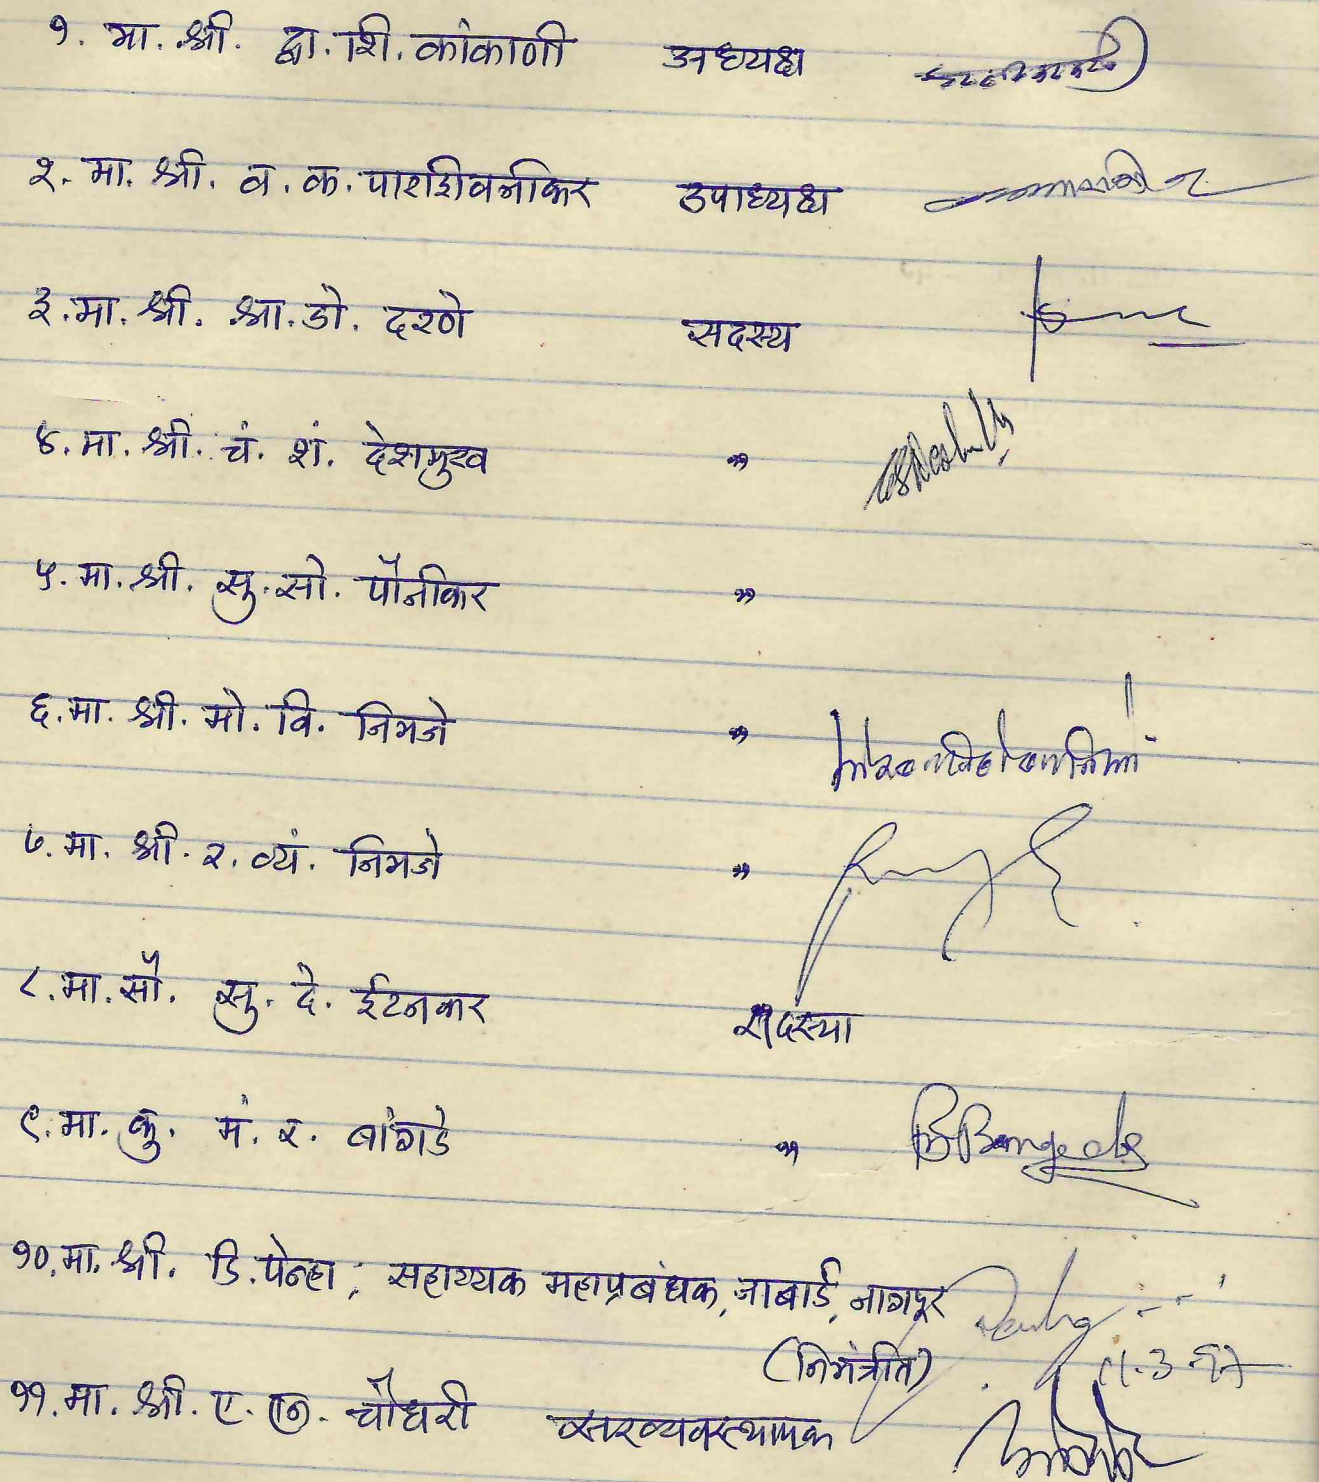 १. मा. श्री. द्वा. शि. कांकाणी अध्यक्ष
२. मा. श्री. व. क. पारशिवनीकर उपाध्यक्ष
३. मा. श्री. श्रा. डो. दरणे सदस्य
४. मा. श्री. चं. शं. देशमुख "
५. मा. श्री. सु. सो. पौनीकर "
६. मा. श्री. मो. वि. निमजे "
७. मा. श्री. र. व्यं. निमजे "
८. मा. सौ. सु. दे. ईटनकर सदस्या
९. मा. कु. मं. र. बांगडे " Bangde
१०. मा. श्री. डि. पेन्हा, सहाय्यक महाप्रबंधक, नाबार्ड, नागपूर
(निमंत्रीत)
११. मा. श्री. ए. जी. चौधरी सरव्यवस्थापक